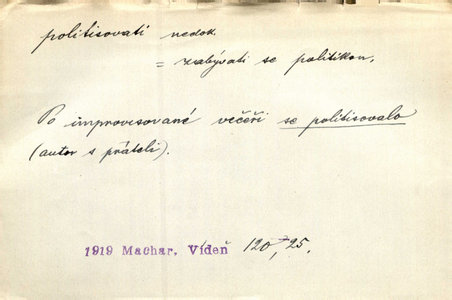 politisovati nedok.
= zabývati se politikou.
Po improvisované večeři se politisovalo
(autor s přáteli).
1919 Machar, Vídeň 120, 25.